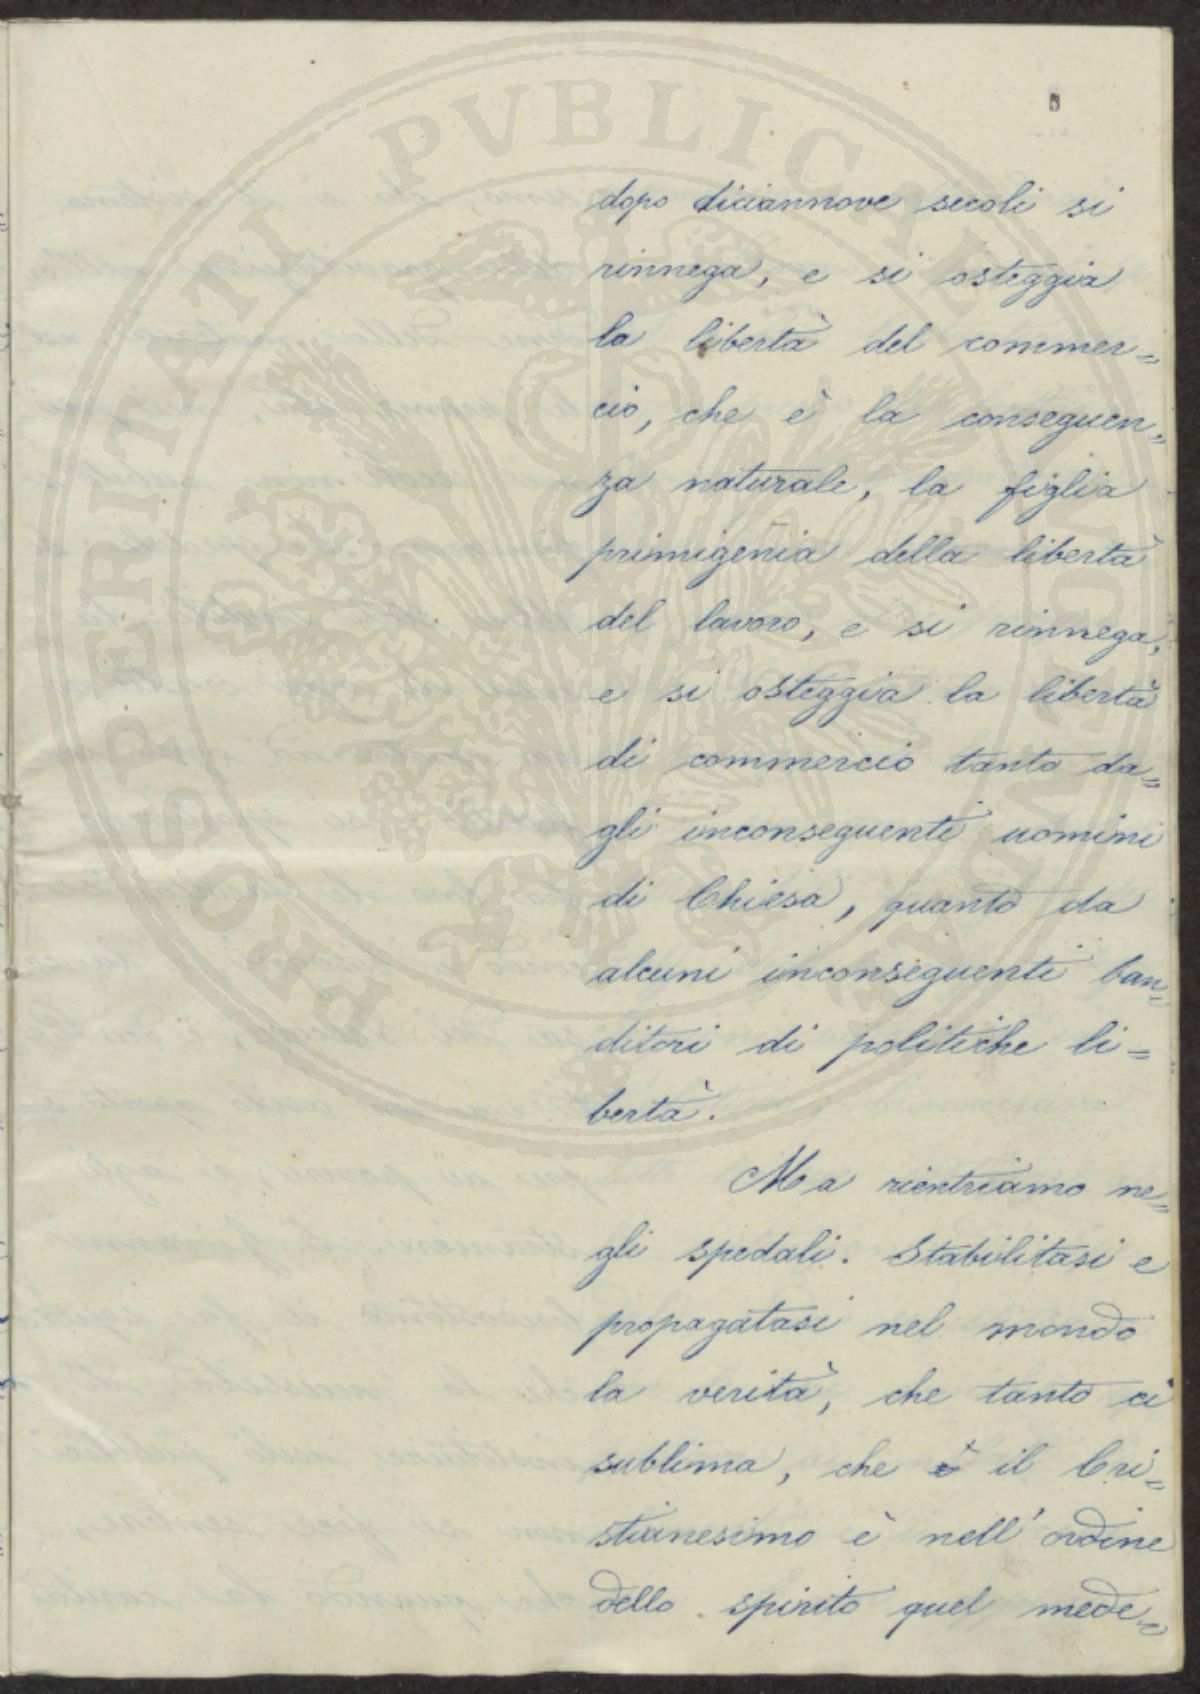 5
dopo diciannove secoli si
rinnega, e si osteggia
la libertà del commer=
cio, che è la conseguen=
za naturale, la figlia
primigenia della libertà
del lavoro, e si rinnega,
e si osteggia la libertà
di commercio tanto da=
gli inconseguenti uomini
di Chiesa, quanto da
alcuni inconseguenti ban=
ditori di politiche li=
bertà.
Ma rientriamo ne=
gli spedali. Stabilitasi e
propagatasi nel mondo
la verità, che tanto ci
sublima, che è il Cri=
stianesimo è nell'ordine
dello spirito quel mede=
PROSPERITATI PVBLICAE AVGENDAE